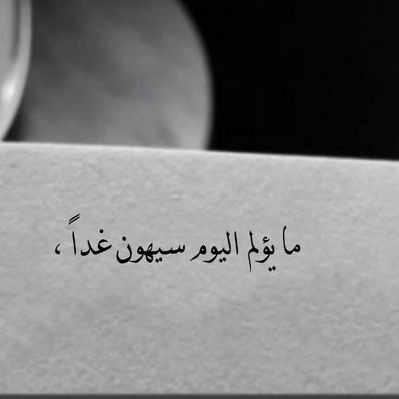 ما يؤلم اليوم سيهون غداً ،